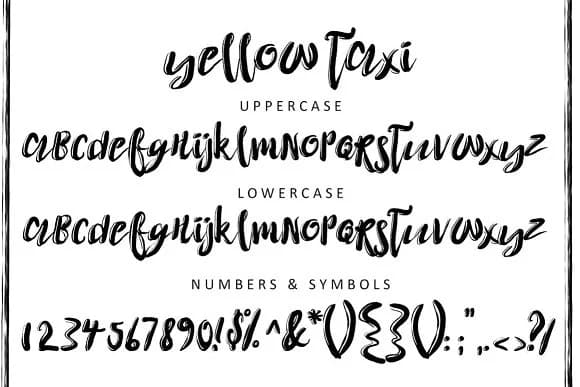 yellow Taxi
UPPERCASE
aBcdefgHijklmNoPQRSTuvwxyz
LOWERCASE
aBcdefgHijklmNoPQRSTuvwxyz
NUMBERS & SYMBOLS
1234567890!$%^&*(){}():;",.<>?/